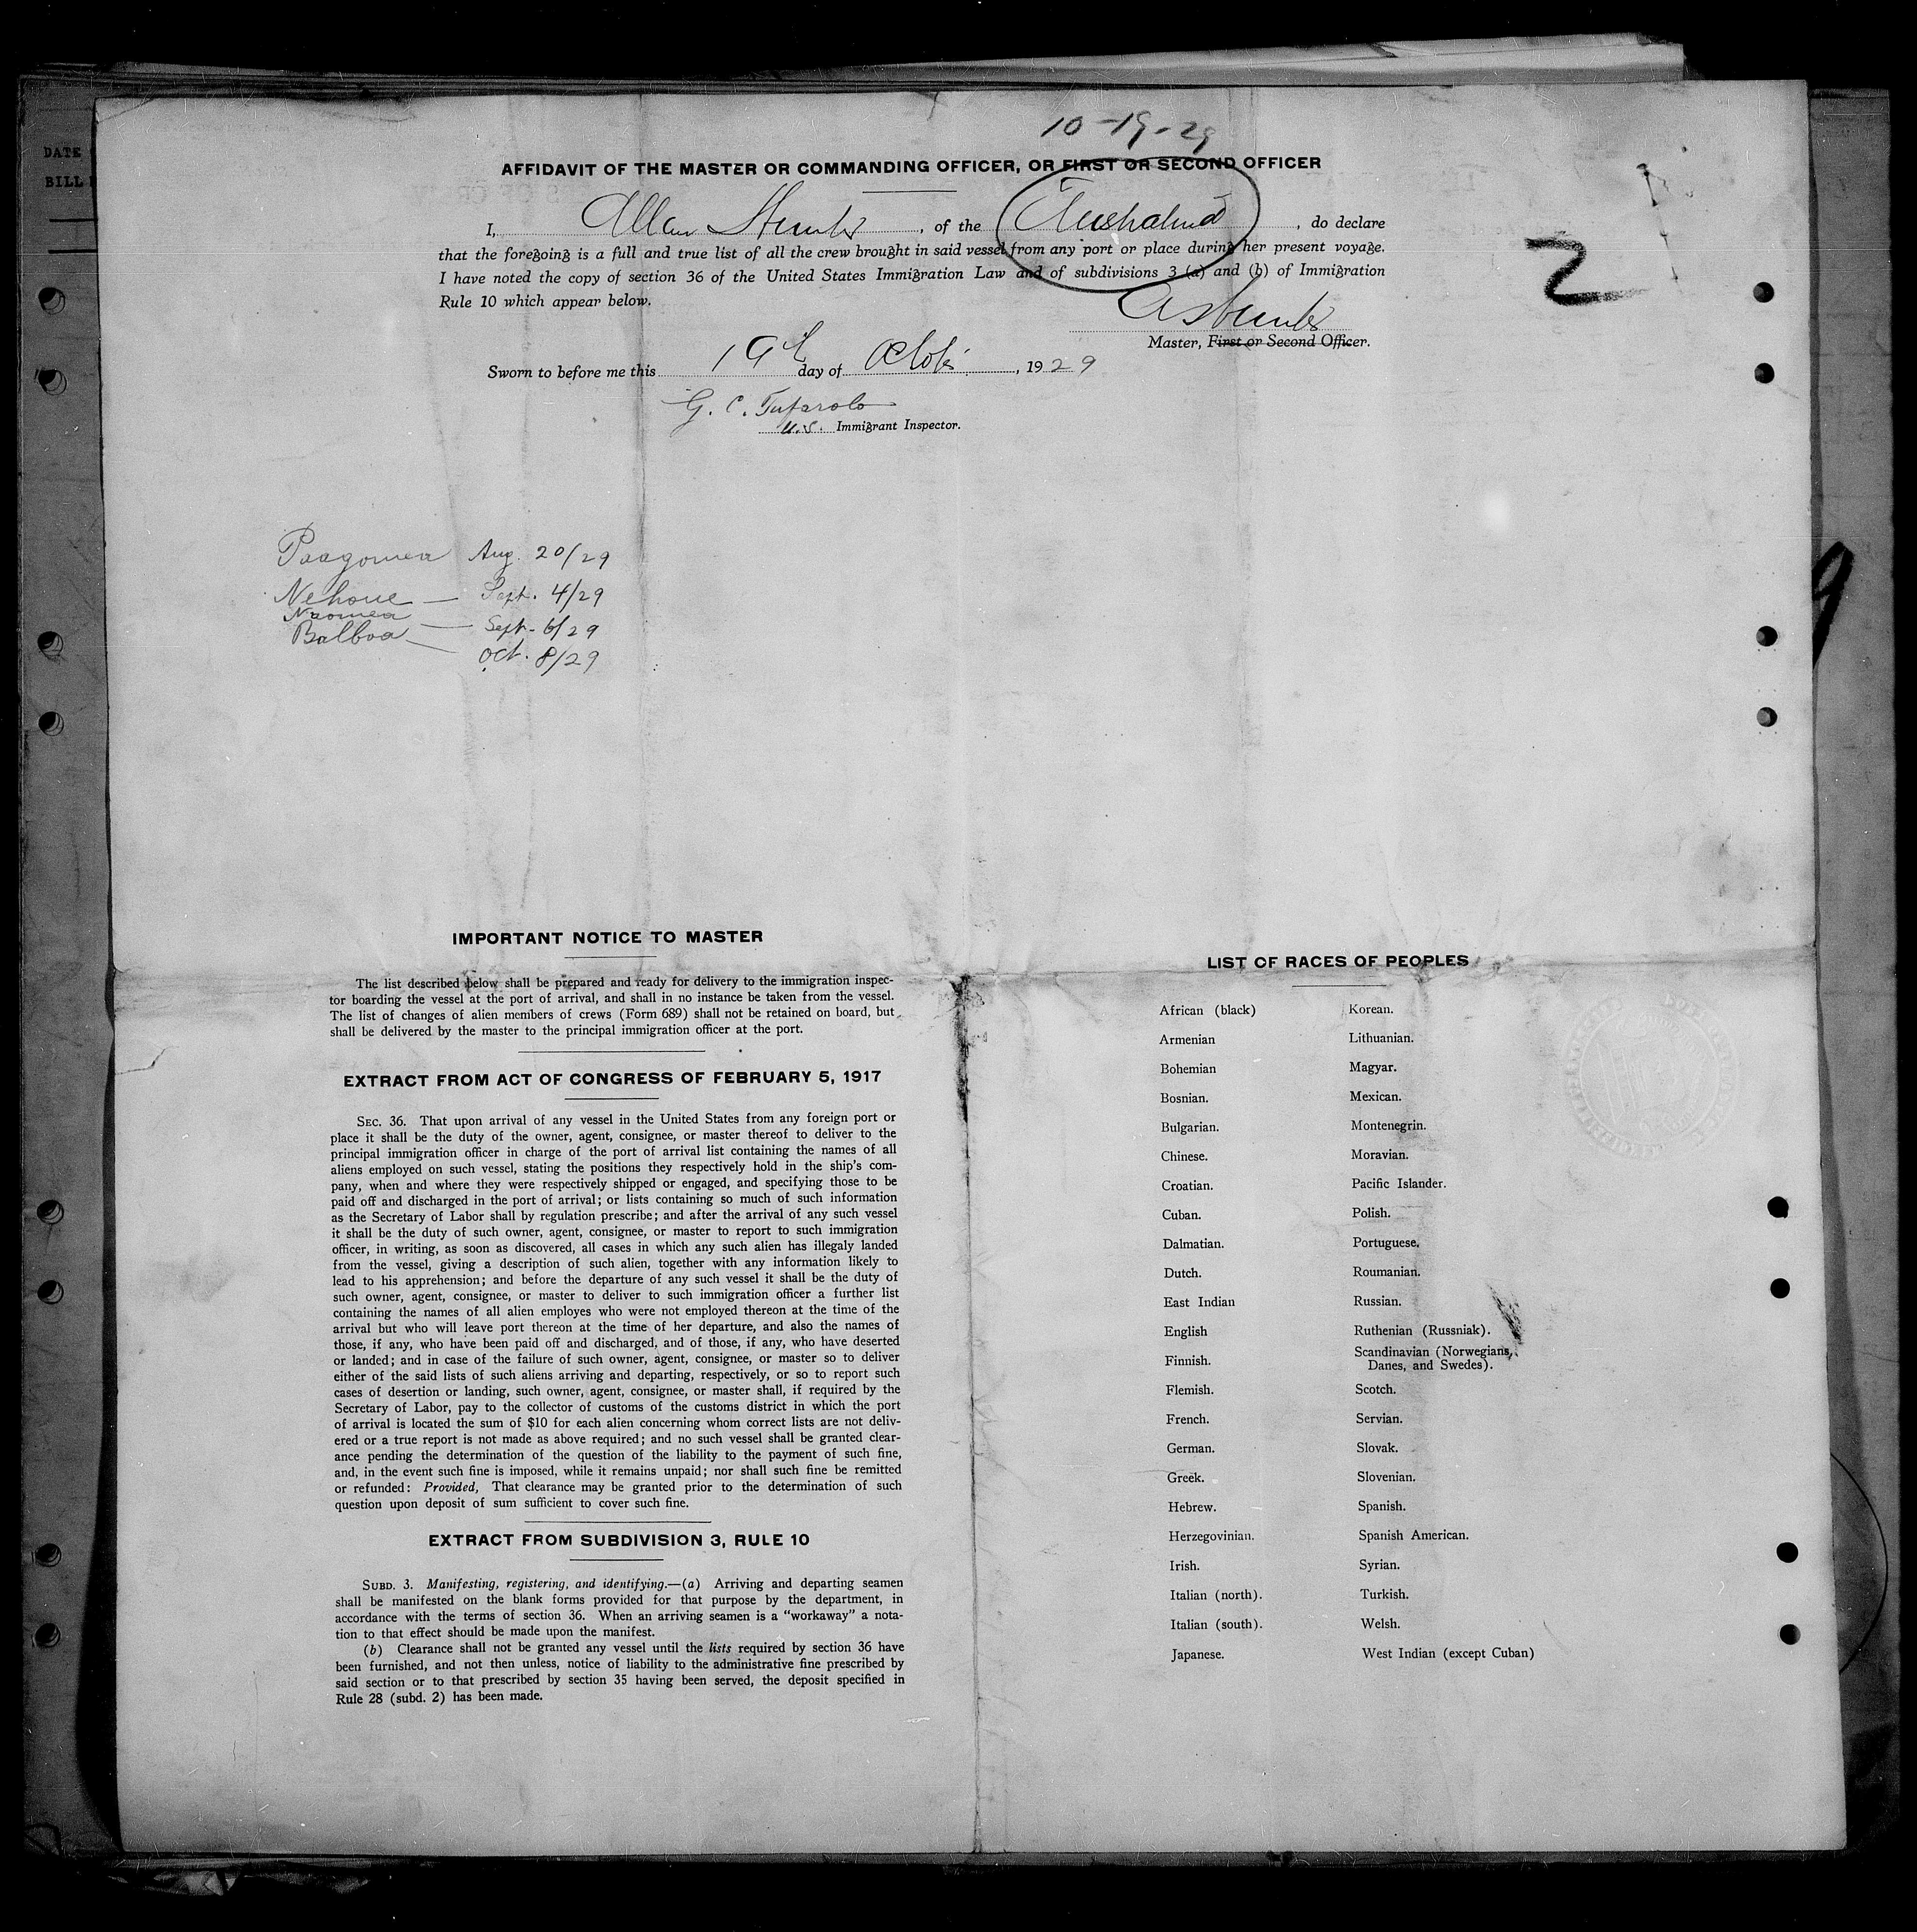 DATE
BILL
10-19-29
AFFIDAVIT OF THE MASTER OR COMMANDING OFFICER, OR FIRST OR SECOND OFFICER
I, Allan, of the, do declare
that the foregoing is a full and true list of all the crew brought in said vessel from any port or place during her present voyage.
I have noted the copy of section 36 of the United States Immigration Law and of subdivisions 3 (a) and (b) of Immigration
Rule 10 which appear below.
2
Master, First or Second Officer.
Sworn to before me this 19th day of, 1929
G. C.
U.S. Immigrant Inspector.
Paagomea Aug. 20/29
Nehoue — Sept. 4/29
Noomea — Sept. 6/29
Balboa — Oct. 8/29
9
IMPORTANT NOTICE TO MASTER
The list described below shall be prepared and ready for delivery to the immigration inspec-
tor boarding the vessel at the port of arrival, and shall in no instance be taken from the vessel.
The list of changes of alien members of crews (Form 689) shall not be retained on board, but
shall be delivered by the master to the principal immigration officer at the port.
EXTRACT FROM ACT OF CONGRESS OF FEBRUARY 5, 1917
SEC. 36. That upon arrival of any vessel in the United States from any foreign port or
place it shall be the duty of the owner, agent, consignee, or master thereof to deliver to the
principal immigration officer in charge of the port of arrival list containing the names of all
aliens employed on such vessel, stating the positions they respectively hold in the ship's com-
pany, when and where they were respectively shipped or engaged, and specifying those to be
paid off and discharged in the port of arrival; or lists containing so much of such information
as the Secretary of Labor shall by regulation prescribe; and after the arrival of any such vessel
it shall be the duty of such owner, agent, consignee, or master to report to such immigration
officer, in writing, as soon as discovered, all cases in which any such alien has illegaly landed
from the vessel, giving a description of such alien, together with any information likely to
lead to his apprehension; and before the departure of any such vessel it shall be the duty of
such owner, agent, consignee, or master to deliver to such immigration officer a further list
containing the names of all alien employes who were not employed thereon at the time of the
arrival but who will leave port thereon at the time of her departure, and also the names of
those, if any, who have been paid off and discharged, and of those, if any, who have deserted
or landed; and in case of the failure of such owner, agent, consignee, or master so to deliver
either of the said lists of such aliens arriving and departing, respectively, or so to report such
cases of desertion or landing, such owner, agent, consignee, or master shall, if required by the
Secretary of Labor, pay to the collector of customs of the customs district in which the port
of arrival is located the sum of $10 for each alien concerning whom correct lists are not deliv-
ered or a true report is not made as above required; and no such vessel shall be granted clear-
ance pending the determination of the question of the liability to the payment of such fine,
and, in the event such fine is imposed, while it remains unpaid; nor shall such fine be remitted
or refunded: Provided, That clearance may be granted prior to the determination of such
question upon deposit of sum sufficient to cover such fine.
EXTRACT FROM SUBDIVISION 3, RULE 10
SUBD. 3. Manifesting, registering, and identifying.—(a) Arriving and departing seamen
shall be manifested on the blank forms provided for that purpose by the department, in
accordance with the terms of section 36. When an arriving seamen is a "workaway" a nota-
tion to that effect should be made upon the manifest.
(b) Clearance shall not be granted any vessel until the lists required by section 36 have
been furnished, and not then unless, notice of liability to the administrative fine prescribed by
said section or to that prescribed by section 35 having been served, the deposit specified in
Rule 28 (subd. 2) has been made.
LIST OF RACES OF PEOPLES
African (black) Korean.
Armenian Lithuanian.
Bohemian Magyar.
Bosnian. Mexican.
Bulgarian. Montenegrin.
Chinese. Moravian.
Croatian. Pacific Islander.
Cuban. Polish.
Dalmatian. Portuguese.
Dutch. Roumanian.
East Indian Russian.
English Ruthenian (Russniak).
Finnish. Scandinavian (Norwegians,
Danes, and Swedes).
Flemish. Scotch.
French. Servian.
German. Slovak.
Greek. Slovenian.
Hebrew. Spanish.
Herzegovinian. Spanish American.
Irish. Syrian.
Italian (north). Turkish.
Italian (south). Welsh.
Japanese. West Indian (except Cuban)